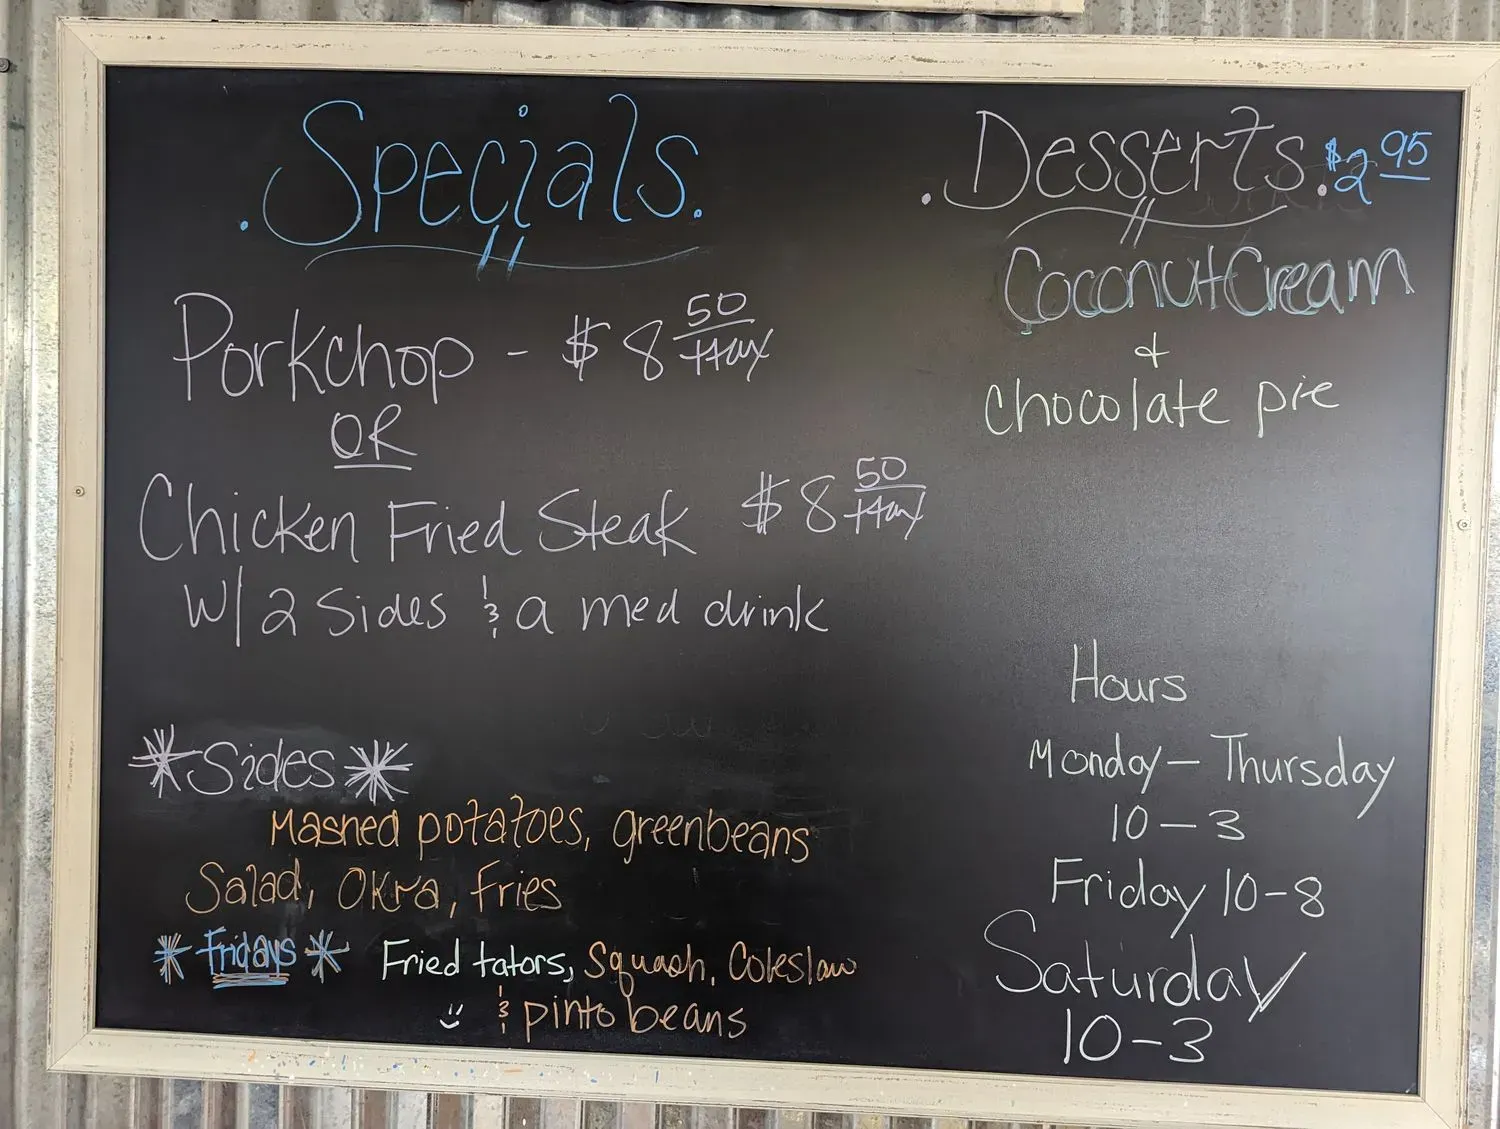 . Specials.
Porkchop - $8 50 +tax
OR
Chicken Fried Steak $8 50 +tax
W/ 2 Sides & a med drink
*Sides*
Mashed potatoes, greenbeans
Salad, Okra, fries
* Fridays * Fried tators, Squash, Coleslaw
& pinto beans
. Desserts. $2 95
Coconut Cream
&
Chocolate pie
Hours
Monday - Thursday
10 - 3
Friday 10 - 8
Saturday
10 - 3